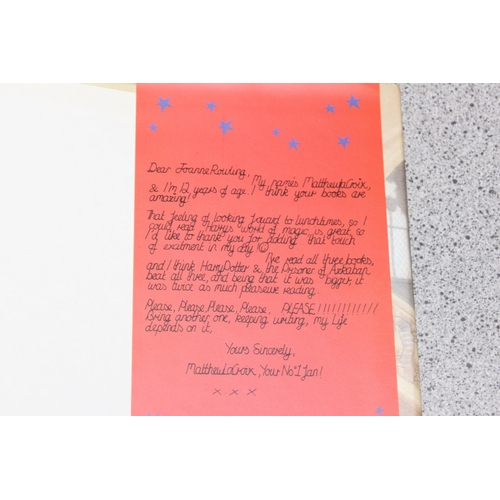 Dear Joanne Rowling,
My names Matthew LaCroix,
& I'm 12 years of age. I think your books are
amazing!
That feeling of looking foward to lunchtimes, so I
could read "Harry's" world of magic is great, so
I'd like to thank you for adding "that" touch
of exitment in my day ☺
I've read all three books,
and I think Harry Potter & the Prisoner of Azkaban
beat all three, and being that it was "bigger" it
was twice as much pleasure reading.
Please, Please, Please, Please, PLEASE!!!!!!!!!!!!
Bring another one, keeping writing, my Life
depends on it.
Yours Sincerely,
Matthew LaCroix, Your No 1 fan!
x x x